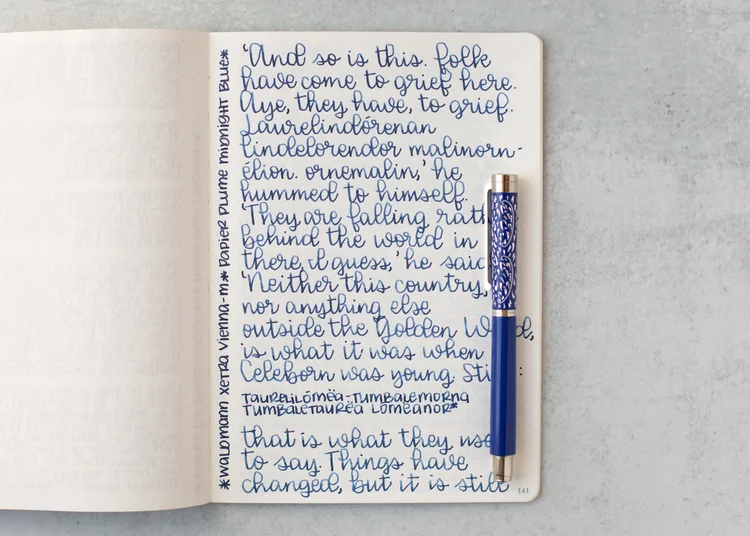 *WALDMANN XETRA VIENNA-M* PAPIER PLUME MIDNIGHT BLUE*
'And so is this. folk
have come to grief here.
Aye, they have, to grief.
Laurelindórenan
lindelorendor malinorn-
élion. ornemalin,' he
hummed to himself.
'They are falling rath
behind the world in
there, I guess,' he said
'Neither this country,
nor anything else
outside the Golden W d,
is what it was when
Celeborn was young. Sti :
TAURELILÓMËA-TUMBALEMORNA
TUMBALETAURËA LÓMËANOR*
that is what they use
to say. Things have
changed, but it is still
141